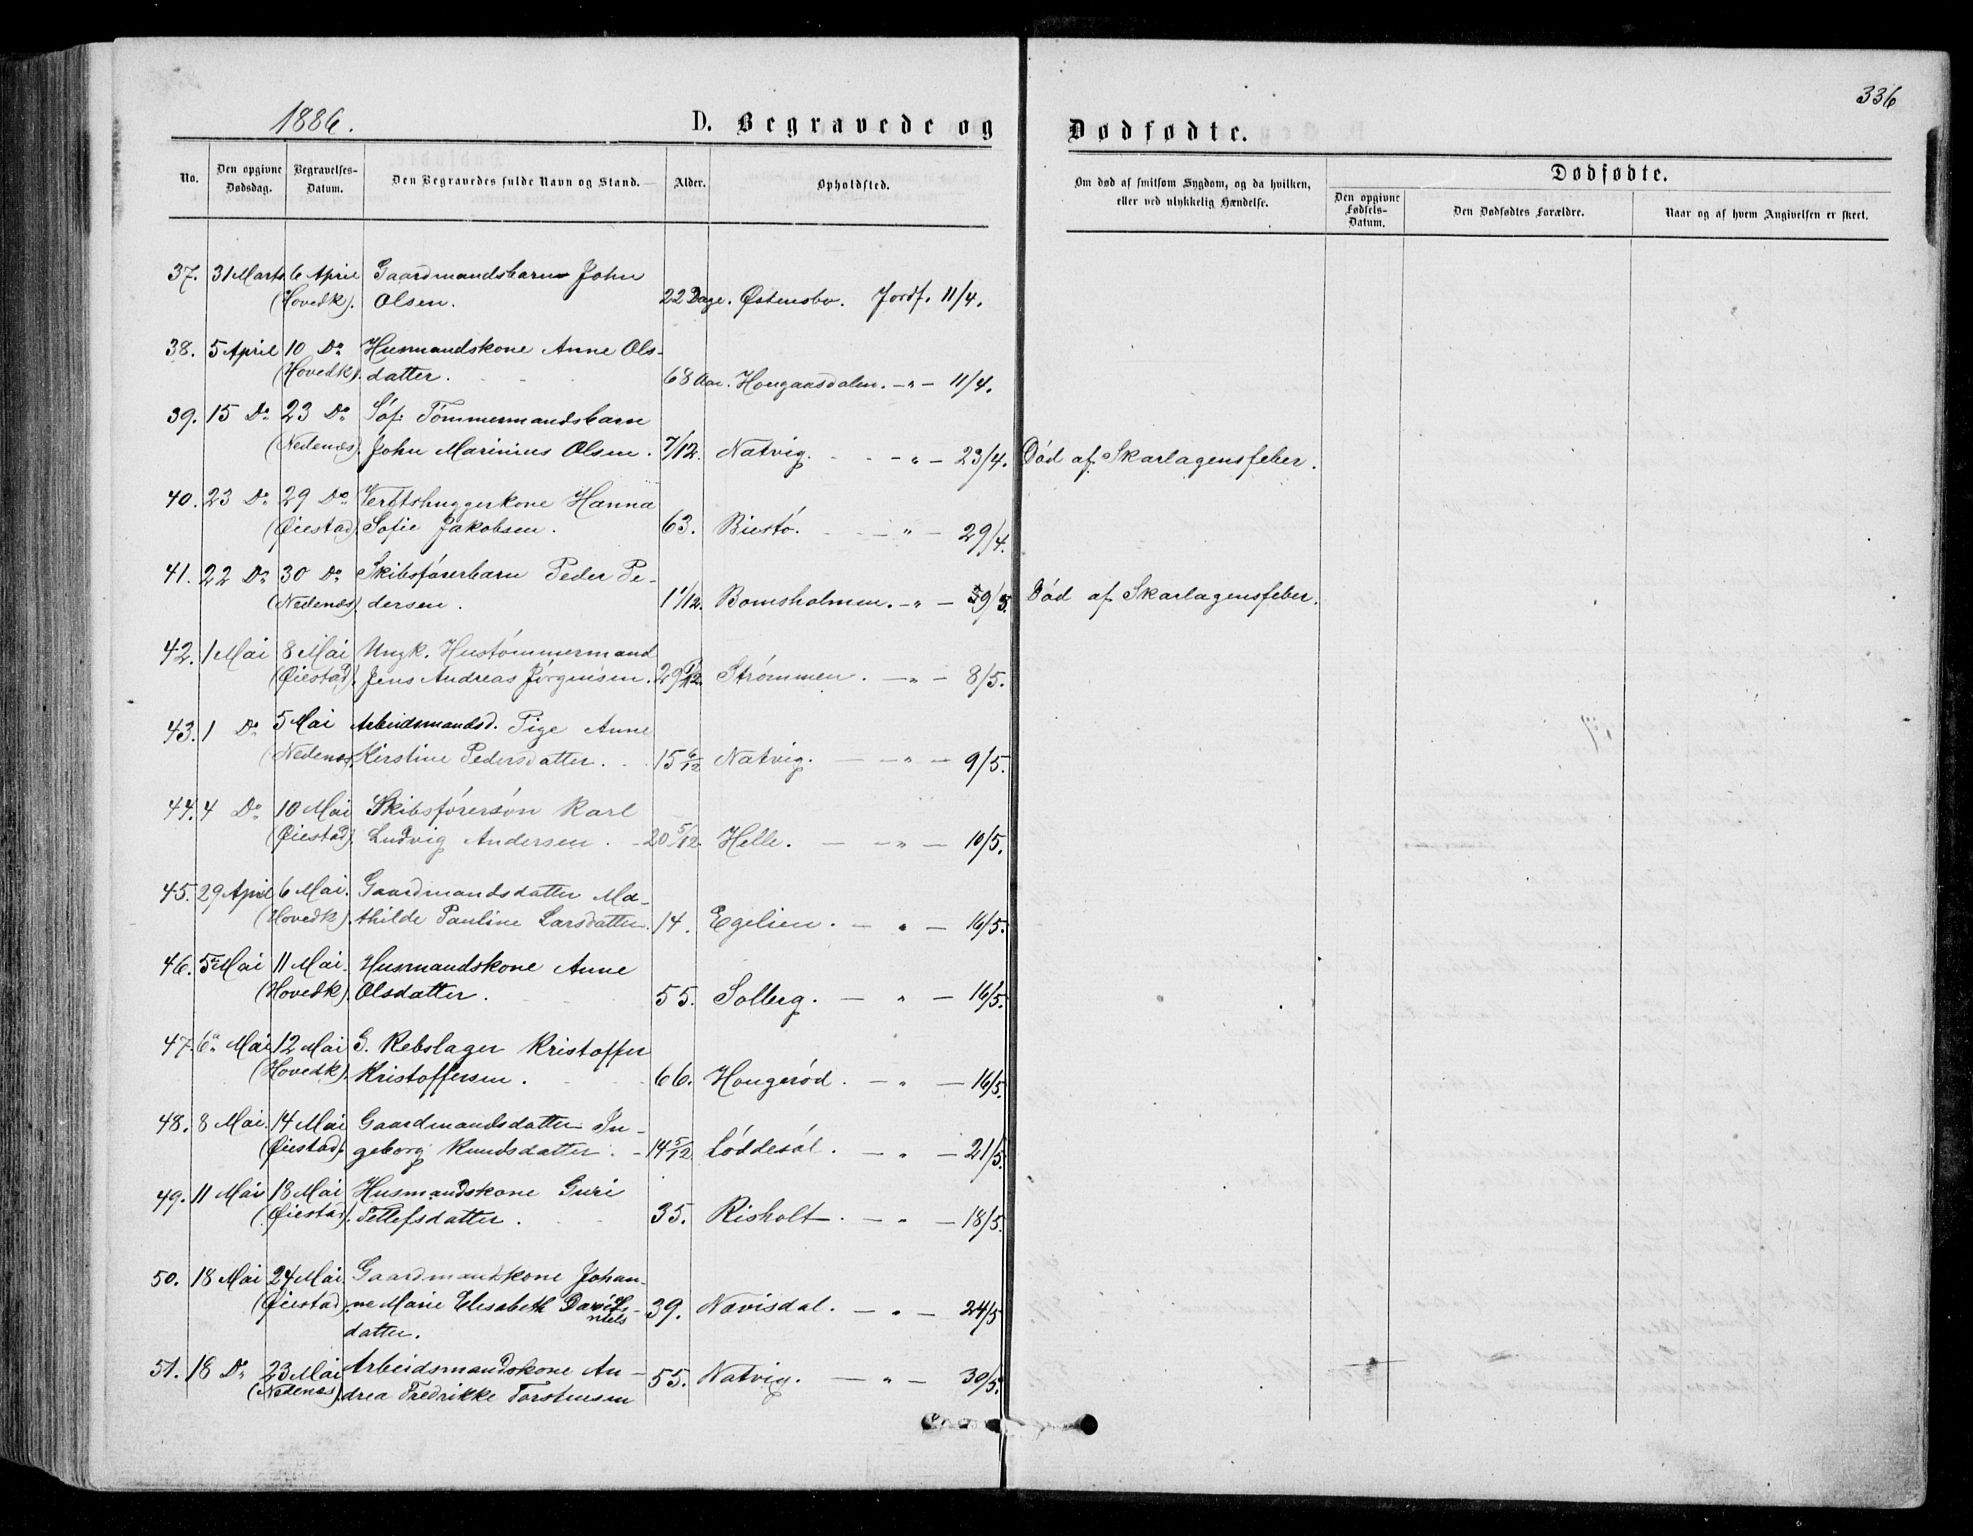 336
1886.
D. Begravede og Dødfødte.
No. Den opgivne Dødsdag. Begravelses-Datum. Den Begravedes fulde Navn og Stand. Alder. Opholdsted. Om død af smitsom Sygdom, og da hvilken, eller ved ulykkelig Hændelse. Dødfødte.
Den opgivne Fødsels-Datum. Den Dødfødtes Forældre. Naar og af hvem Angivelsen er skeet.
37. 31 Marts 6 April Gaardmandsbarn John
(Hovedk). Olsen. 22 Dage. Østensbv. Jordf. 11/4.
38. 5 April 10 Do Husmandskone Anne Ols-
(Hovedk). datter. 68 Aar. Hougaasdalen. - " - 11/4.
39. 15 Do 23 Do Søf. Tømmermandsbarn
(Nedenæs). John Marinius Olsen. 7/12. Natvig. - " - 23/4. Død af Skarlagensfeber.
40. 23 Do 29 Do Verftshuggerkone Hanna
(Øiestad). Sofie Jakobsen. 63. Biestø. - " - 29/4.
41. 22 Do 30 Do Skibsførerbarn Peder Pe-
(Nedenæs). dersen. 1 1/12. Bomsholmen. - " - 9/5. Død af Skarlagensfeber.
42. 1 Mai 8 Mai Ungk. Hustømmermand
(Øiestad). Jens Andreas Jørgensen. 29 /12. Strømmen. - " - 8/5.
43. 1 Do 5 Mai Arbeidsmandsd. Pige Anne
(Nedenæs). Kirstine Pedersdatter. 15 6/12 Natvig. - " - 9/5.
44. 4 Do 10 Mai Skibsførersøn Karl
(Øiestad). Ludvig Andersen. 20 5/12. Helle. - " - 10/5.
45. 29 April 6 Mai. Gaardmandsdatter Ma-
(Hovedk). thilde Pauline Larsdatter. 14. Egelien. - " - 16/5.
46. 5 Mai 11 Mai. Husmandskone Anne
(Hovedk). Olsdatter. 55. Solberg. - " - 16/5.
47. 6 Mai 12 Mai G. Rebslager Kristoffer
(Hovedk). Kristoffersen. 66. Hougerød. - " - 16/5.
48. 8 Mai. 14 Mai Gaardmandsdatter In-
(Øiestad). geborg Knudsdatter. 14 5/12 Løddesøl. - " - 21/5.
49. 11 Mai 18 Mai Husmandskone Guri
(Øiestad). Tellefsdatter. 35. Risholt. - " - 18/5.
50. 18 Mai 24 Mai Gaardmandskone Johan-
(Øiestad). ne Marie Elisabeth Daniels-
datter. 39. Navisdal. - " - 24/5
51. 18 Do 23 Mai Arbeidsmandskone An-
(Nedenæs). drea Fredrikke Torstensen 55. Natvig. - " - 30/5.